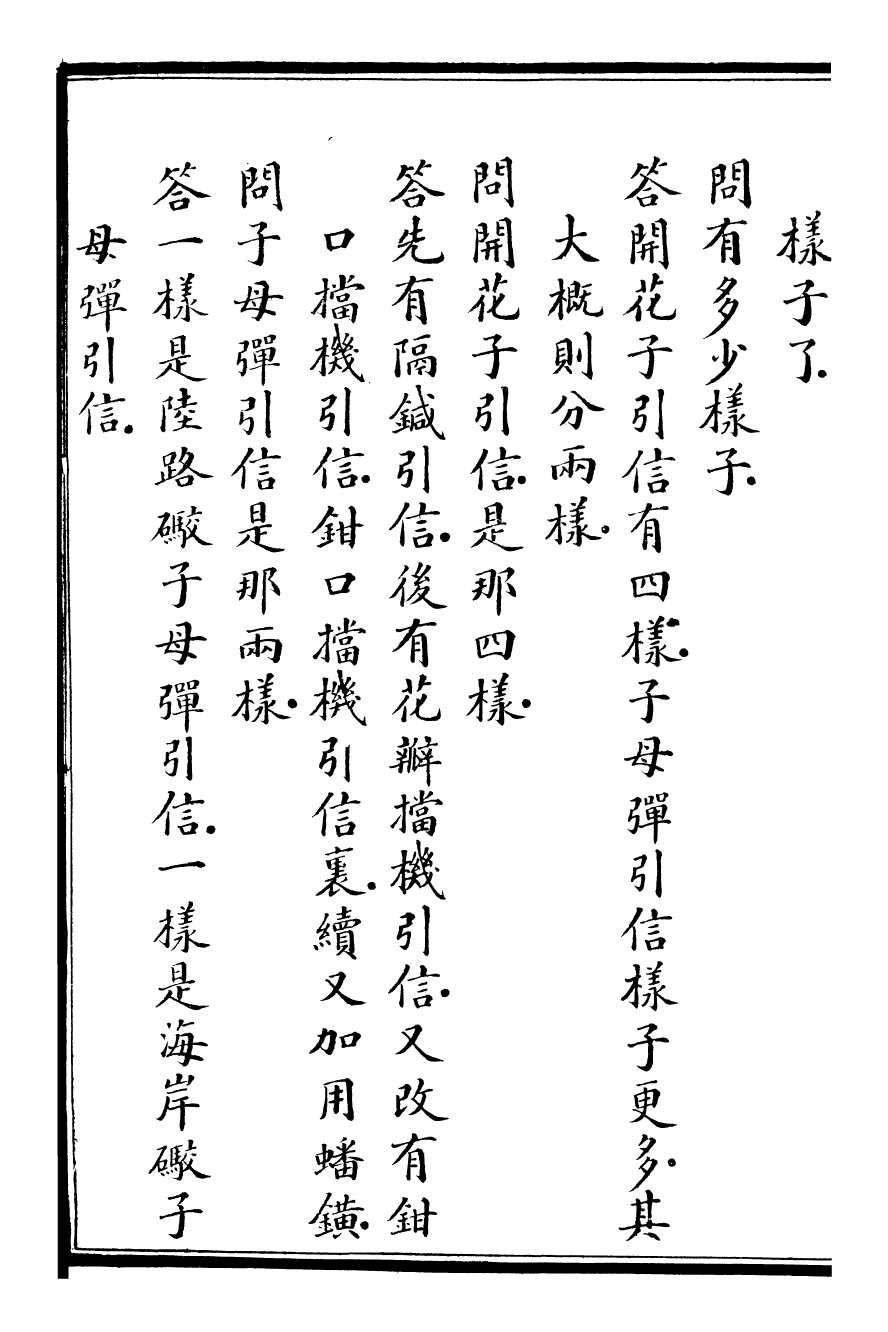 樣子了.
問有多少樣子.
答開花子引信有四樣.子母彈引信樣子更多.其
大概則分兩樣。
問開花子引信.是那四樣.
答先有隔鍼引信.後有花瓣擋機引信.又改有鉗
口擋機引信.鉗口擋機引信裏.續又加用蟠鐄.
問子母彈引信是那兩樣.
答一樣是陸路礮子母彈引信.一樣是海岸礮子
母彈引信.